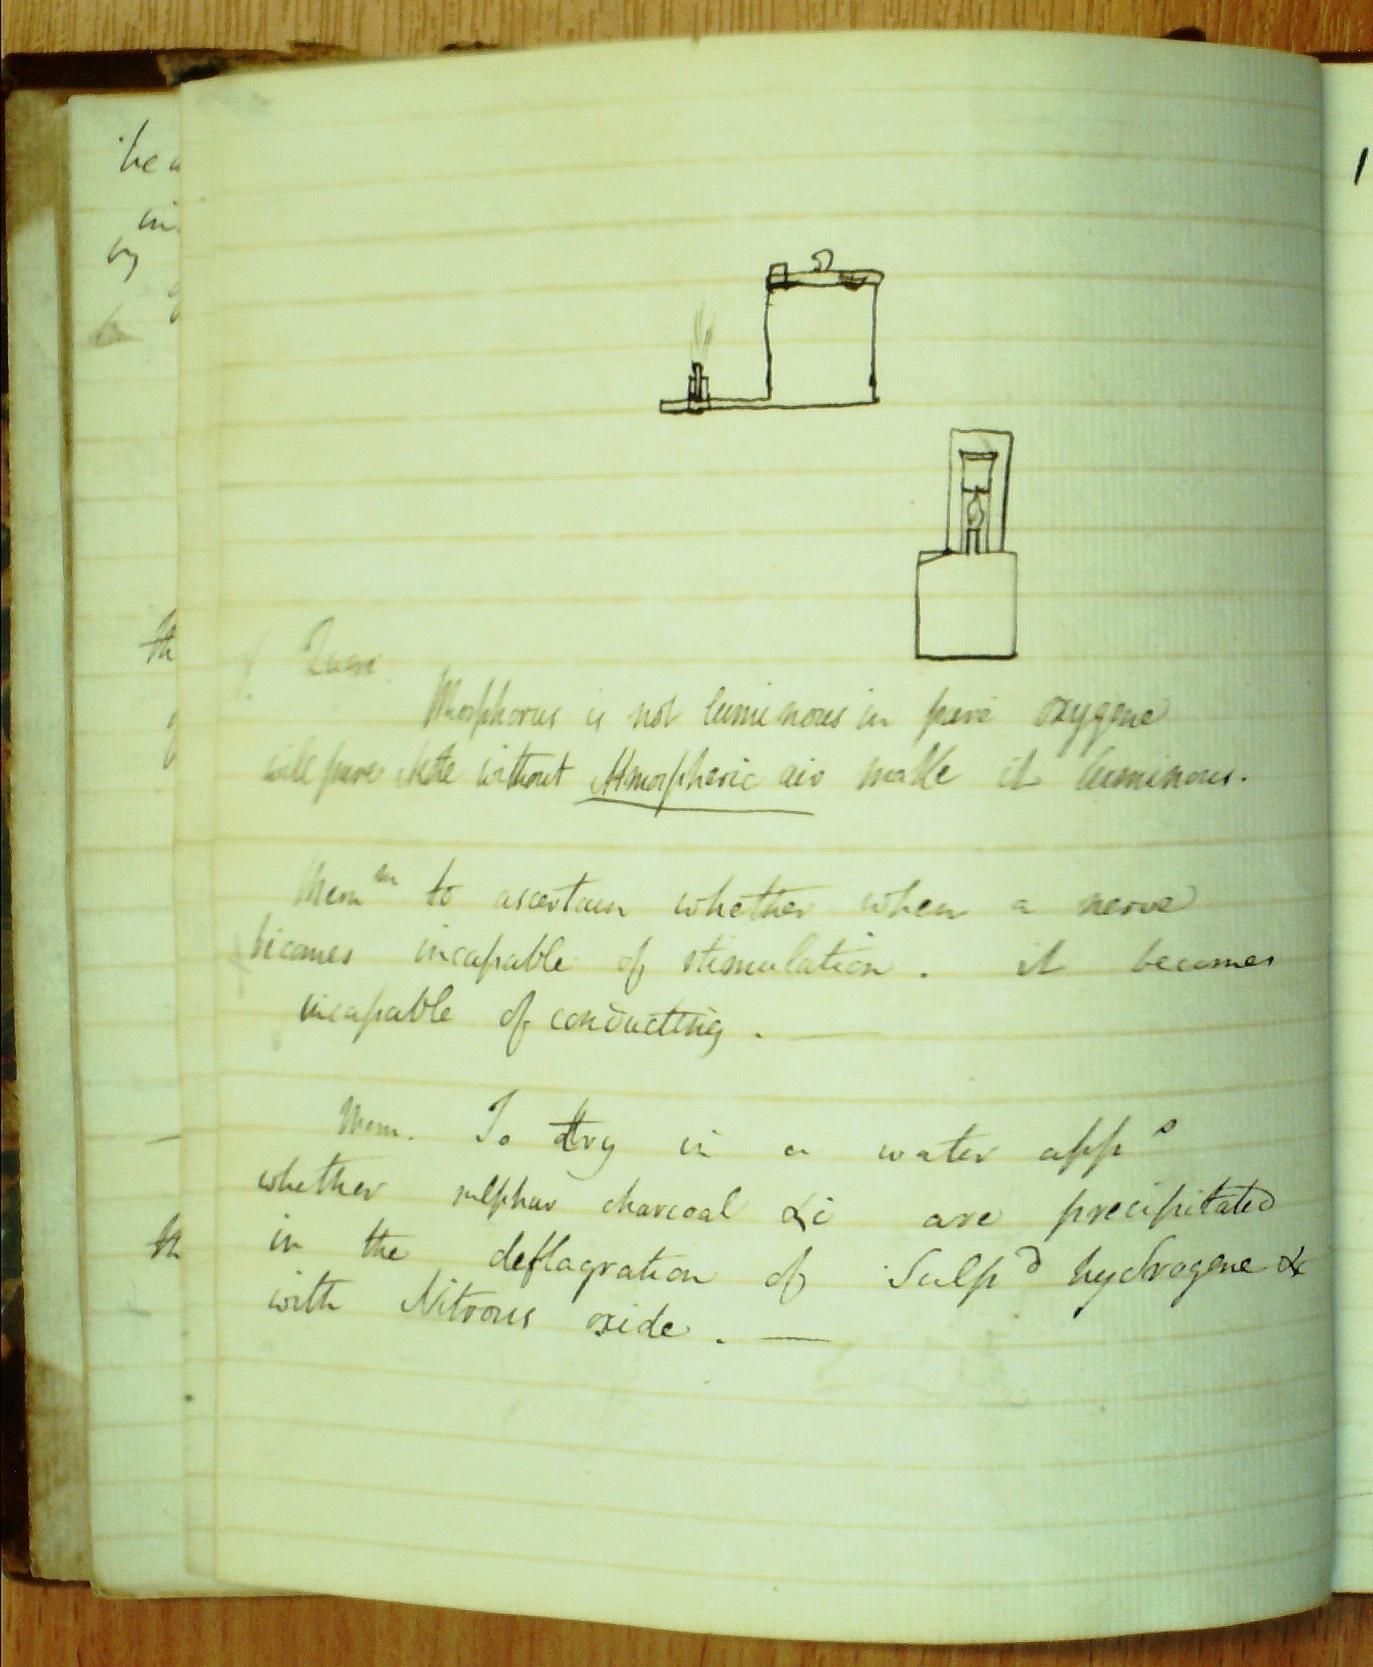 Quere.
Phosphorus is not luminous in pure oxygene
will pure without Atmospheric air make it luminous.
Mem^m to ascertain whether when a nerve
becomes incapable of stimulation. it becomes
incapable of conducting. —
Mem. To try in a water app^s
whether sulphur charcoal &c are precipitated
in the deflagration of Sulp^d hydrogene &c
with Nitrous oxide. —